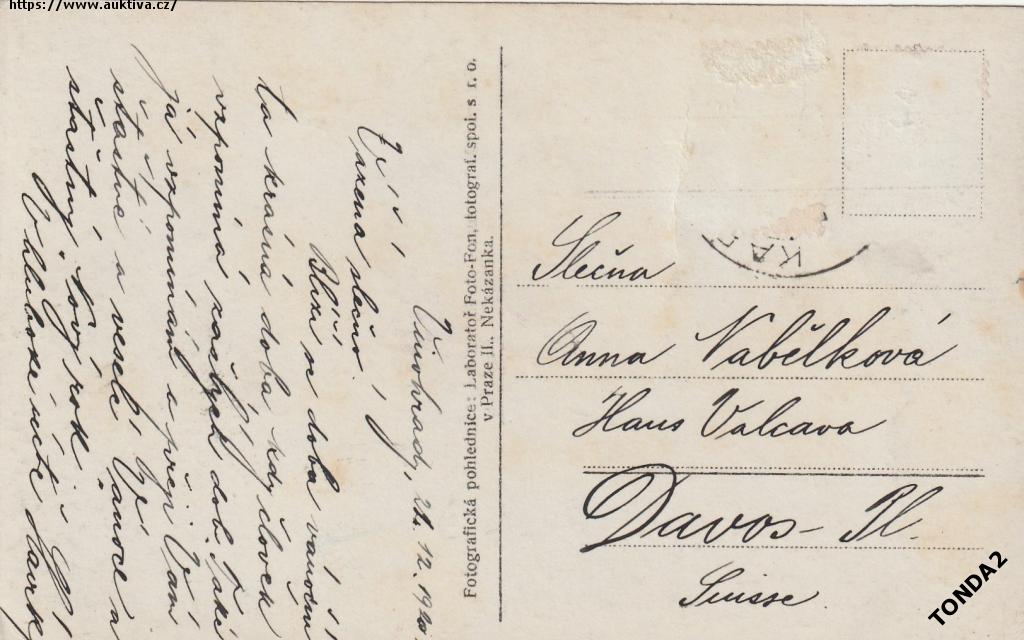 https://www.auktiva.cz/
Vinohrady, 21. 12. 192
Vážená slečno!
Blíží se doba vánoční
ta krásná doba, kdy človek
vzpomíná zašlých dob. Také
já vzpomínám a přeji Vám
šťastné a veselé Vánoce a
šťastný Nový rok.
V hluboké úctě
Fotografická pohlednice: Laboratoř Foto-Fon, fotograf. spol. s r. o.
v Praze II., Nekázanka.
KA
Slečna
Anna Nabělková
Haus Valcava
Davos-Pl.
Suisse.
TONDA2